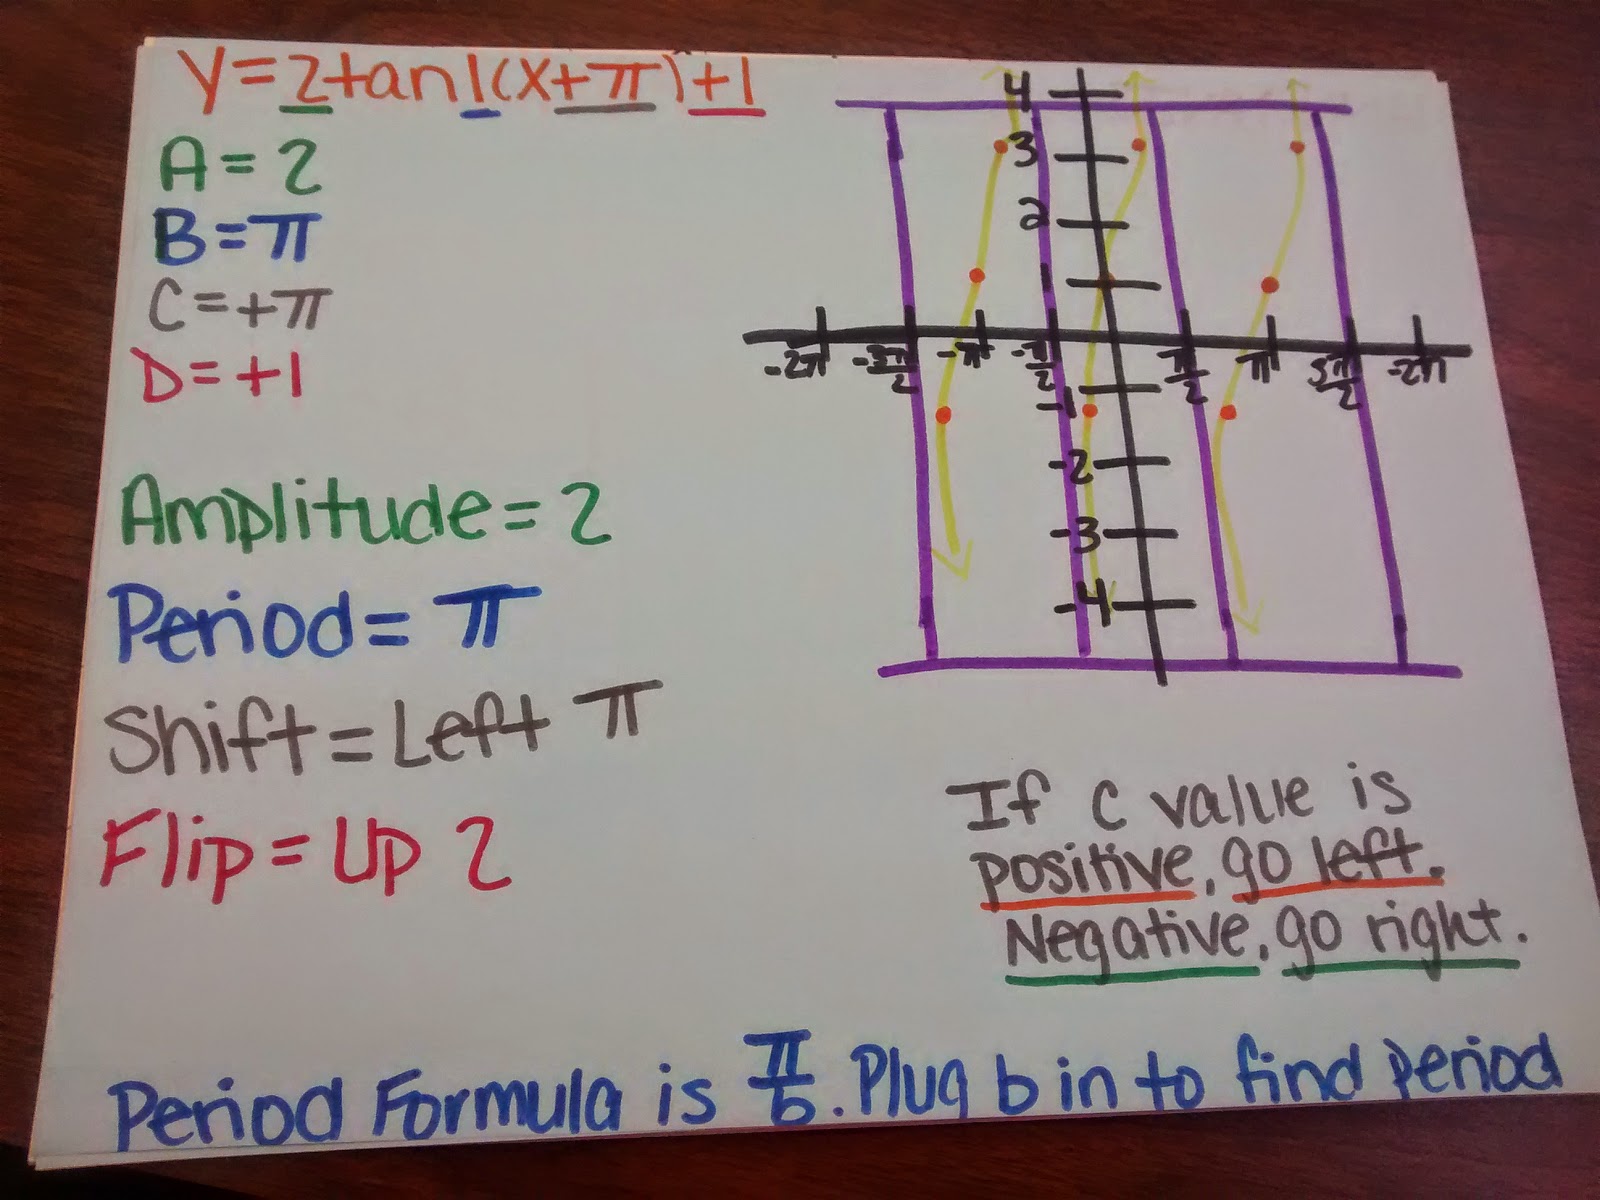 y=2tan1(x+π)+1
A=2
B=π
C=+π
D=+1
Amplitude=2
Period=π
Shift=Left π
Flip=Up 2
4
3
2
1
-2π -3π/2 -π -π/2 π/2 π 3π/2 -2π
-1
-2
-3
-4
If C value is
positive, go left.
Negative, go right.
Period Formula is π/b. Plug b in to find period